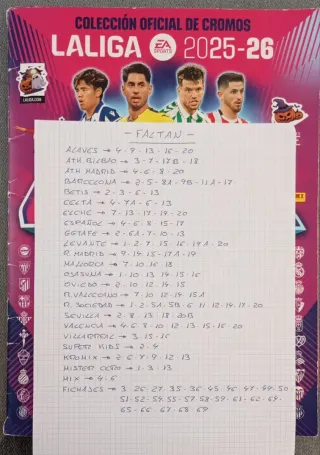 COLECCIÓN OFICIAL DE CROMOS
LALIGA EA SPORTS 2025-26
- FALTAN -
ALAVES → 4 - 7 - 13 - 16 - 20
ATH BILBAO → 3 - 7 - 17B - 18
ATH MADRID → 4 - 6 - 8 - 20
BARCELONA → 2 - 5 - 8A - 9B - 11A - 17
BETIS → 2 - 3 - 6 - 13
CELTA → 4 - 7A - 6 - 13
ELCHE → 7 - 13 - 17 - 19 - 20
ESPAÑOL → 4 - 6 - 8 - 15 - 17
GETAFE → 2 - 6A - 7 - 10 - 13
LEVANTE → 1 - 2 - 7 - 15 - 16 - 19A - 20
R. MADRID → 9 - 14 - 15 - 17A - 19
MALLORCA → 7 - 10 - 16 - 18
OSASUNA → 1 - 10 - 13 - 14 - 15 - 16
OVIEDO → 2 - 10 - 12 - 14 - 15
R. VALLECANO → 7 - 10 - 12 - 14 - 15A
R. SOCIEDAD → 1 - 2 - 5A - 5B - 6 - 11 - 12 - 14 - 17 - 20
SEVILLA → 2 - 8 - 13 - 18 - 20B
VALENCIA → 4 - 6 - 8 - 10 - 12 - 13 - 15 - 16 - 20
VILLARREAL → 3 - 15 - 16
SUPER KIDS → 2 - 4
KROMIX → 2 - 6 - 7 - 9 - 12 - 13
MISTER CERO → 1 - 3 - 13
MIX → 4 - 6
FICHAJES → 3 - 26 - 27 - 35 - 36 - 45 - 46 - 47 - 49 - 50
51 - 52 - 54 - 55 - 57 - 58 - 59 - 61 - 62 - 64
65 - 66 - 67 - 68 - 69